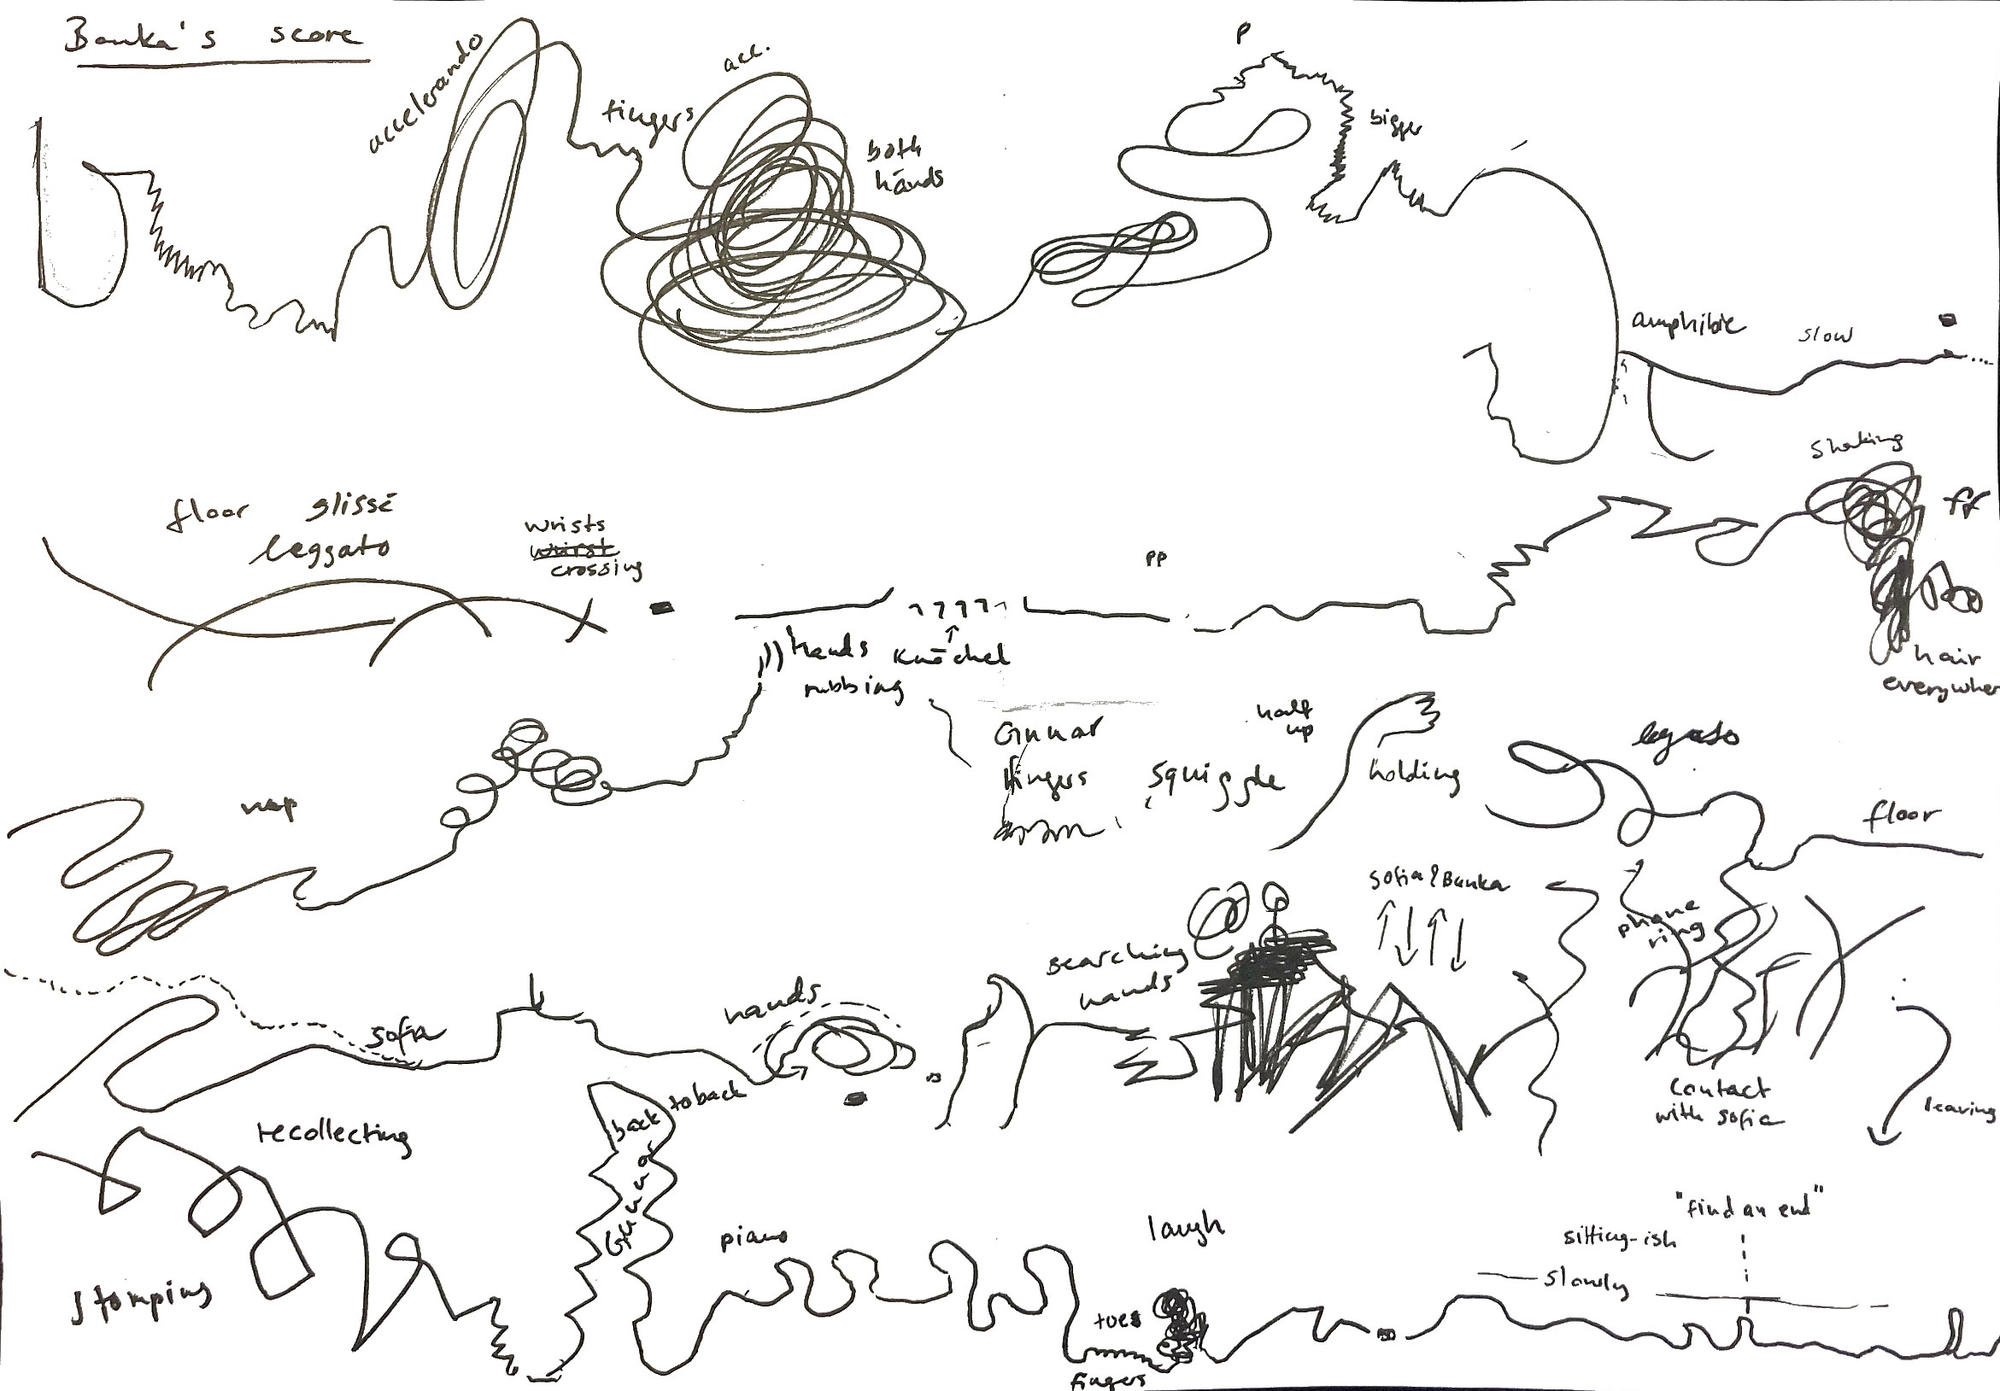 Banka's score
accelerando
fingers
acc.
both
hands
p
bigger
amphibic
slow
floor glissé
leggato
wrists
wurst
crossing
pp
shaking
ff
hair
everywher
hands
rubbing
Knöchel
Gunnar
fingers
squiggle
half
up
holding
legato
floor
nap
sofia
hands
searching
hands
Sofia & Banka
phone
ring
contact
with sofia
leaving
recollecting
back to back
Gunnar
stomping
piano
laugh
toes
fingers
sitting-ish
slowly
"find an end"